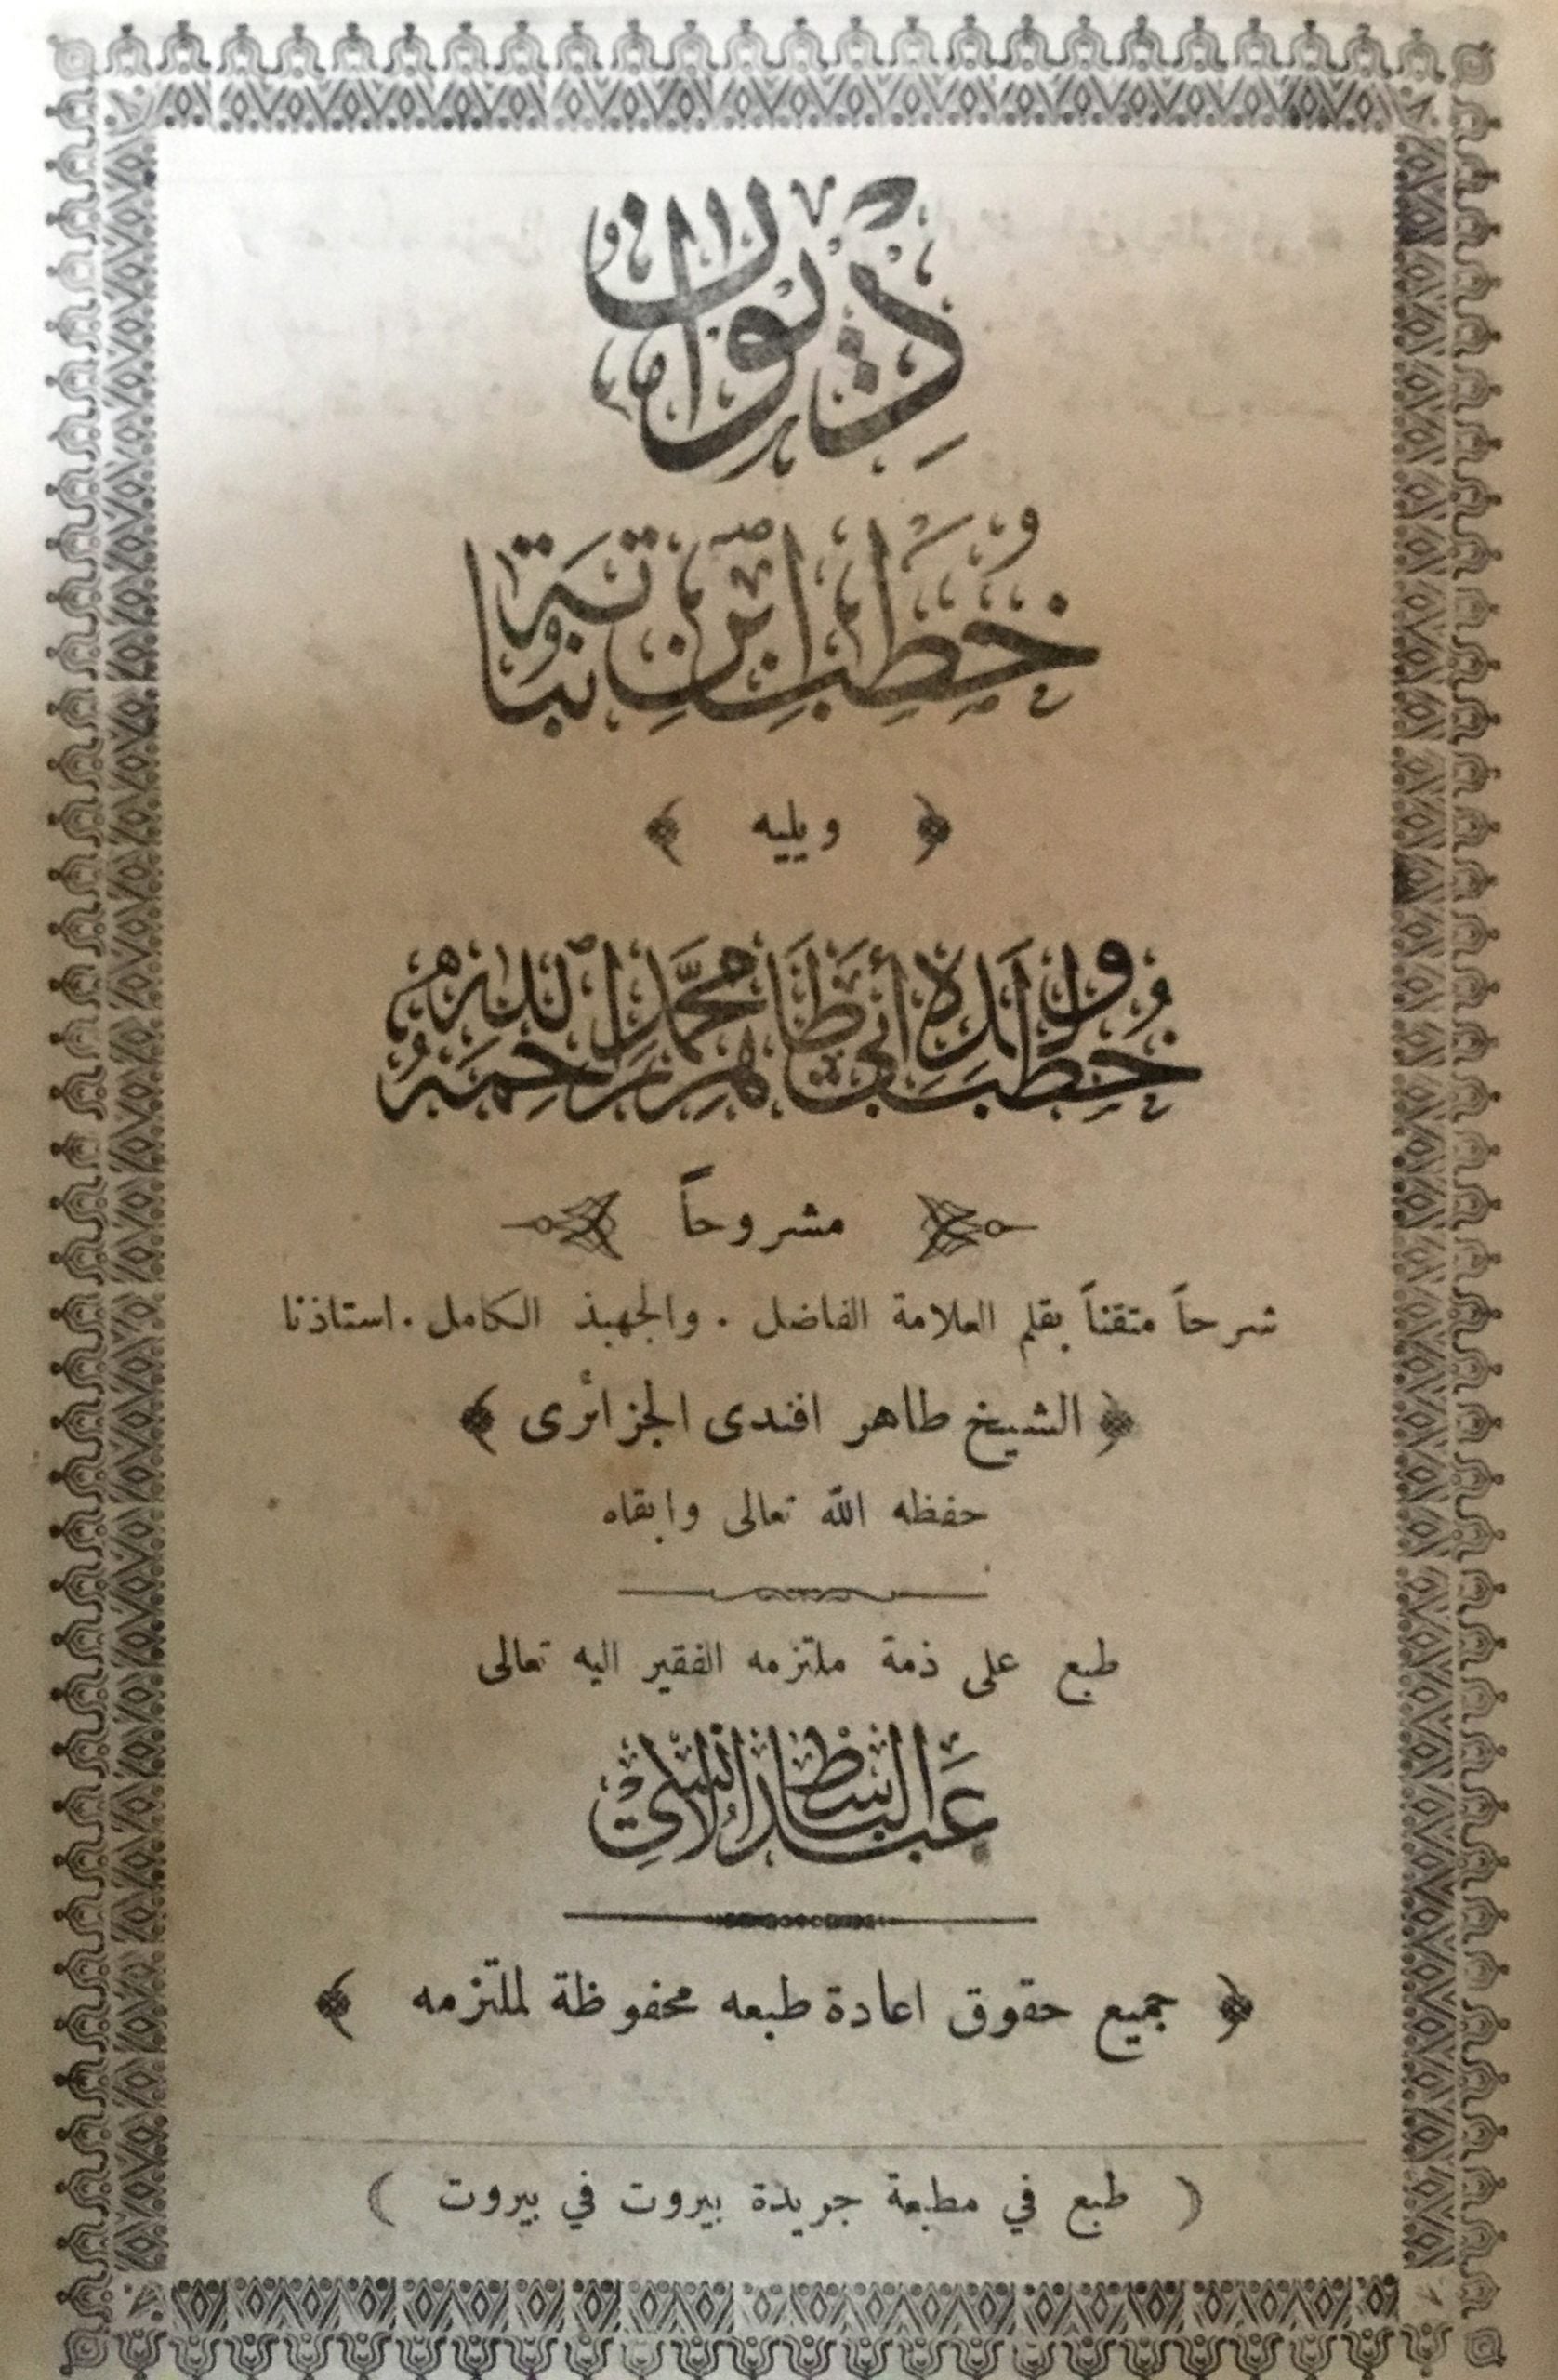 ديوان
خطب ابن نباتة
ويليه
خطب ولده أبي طاهر محمد رحمه الله
مشروحاً
شرحاً متقناً بقلم العلامة الفاضل . والجهبذ الكامل . استاذنا
الشيخ طاهر افندى الجزائرى
حفظه الله تعالى وابقاه
طبع على ذمة ملتزمه الفقير اليه تعالى
عبد الباسط الانسي
جميع حقوق اعادة طبعه محفوظة لملتزمه
( طبع في مطبعة جريدة بيروت في بيروت )